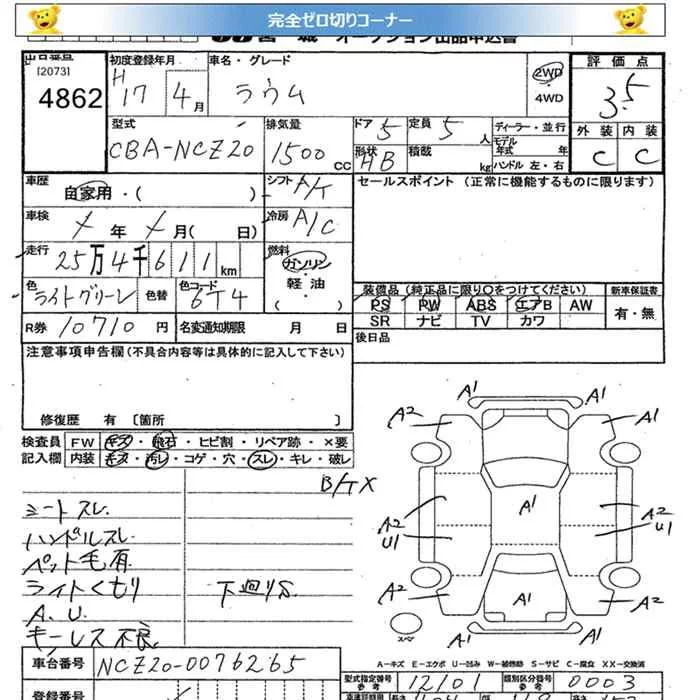 完全ゼロ切りコーナー
宮城 オークション出品申込書
出品番号 初度登録年月 車名・グレード 評価点
[2073] H 2WD
4862 17 4月 ラウム 4WD 3.5
型式 排気量 ドア 5 定員 5人 ディーラー・並行 外装 内装
CBA-NCZ20 1500cc 形状 HB 積載 kg モデル年式 年式 ハンドル 左・右 C C
車歴 自家用・( ) シフト A/T セールスポイント (正常に機能するものに限ります)
車検 メ年 メ月( 日) 冷房 A/C
走行 25万4千611km 燃料 ガソリン・軽油・( )
色 ライトグリーン 色替 色コード 6T4 装備品 (純正品に限り○をつけてください) 新車保証書
PS PW ABS エアB AW 有・無
R券 10710円 名変通知期限 月 日 SR ナビ TV カワ
注意事項申告欄(不具合内容等は具体的に記入して下さい) 後日品
修復歴 有 [箇所 ]
検査員 FW キズ・飛石・ヒビ割・リペア跡・×要
記入欄 内装 キズ・汚レ・コゲ・穴・スレ・キレ・破レ
B/T X
シートスレ
ハンドルスレ
ペット毛有
ライトくもり 下廻りS
A.U.
キーレス不良
A1 A1
A2 A1
A1
A2 A2
U1 U1
A2 A1 A2
A1 A1
スペア
A-キズ E-エクボ U-凹み W-補修跡 S-サビ C-腐食 XX-交換済
車台番号 NCZ20-0076265
型式指定番号 参考 12101 類別区分番号 参考 0003
登録番号